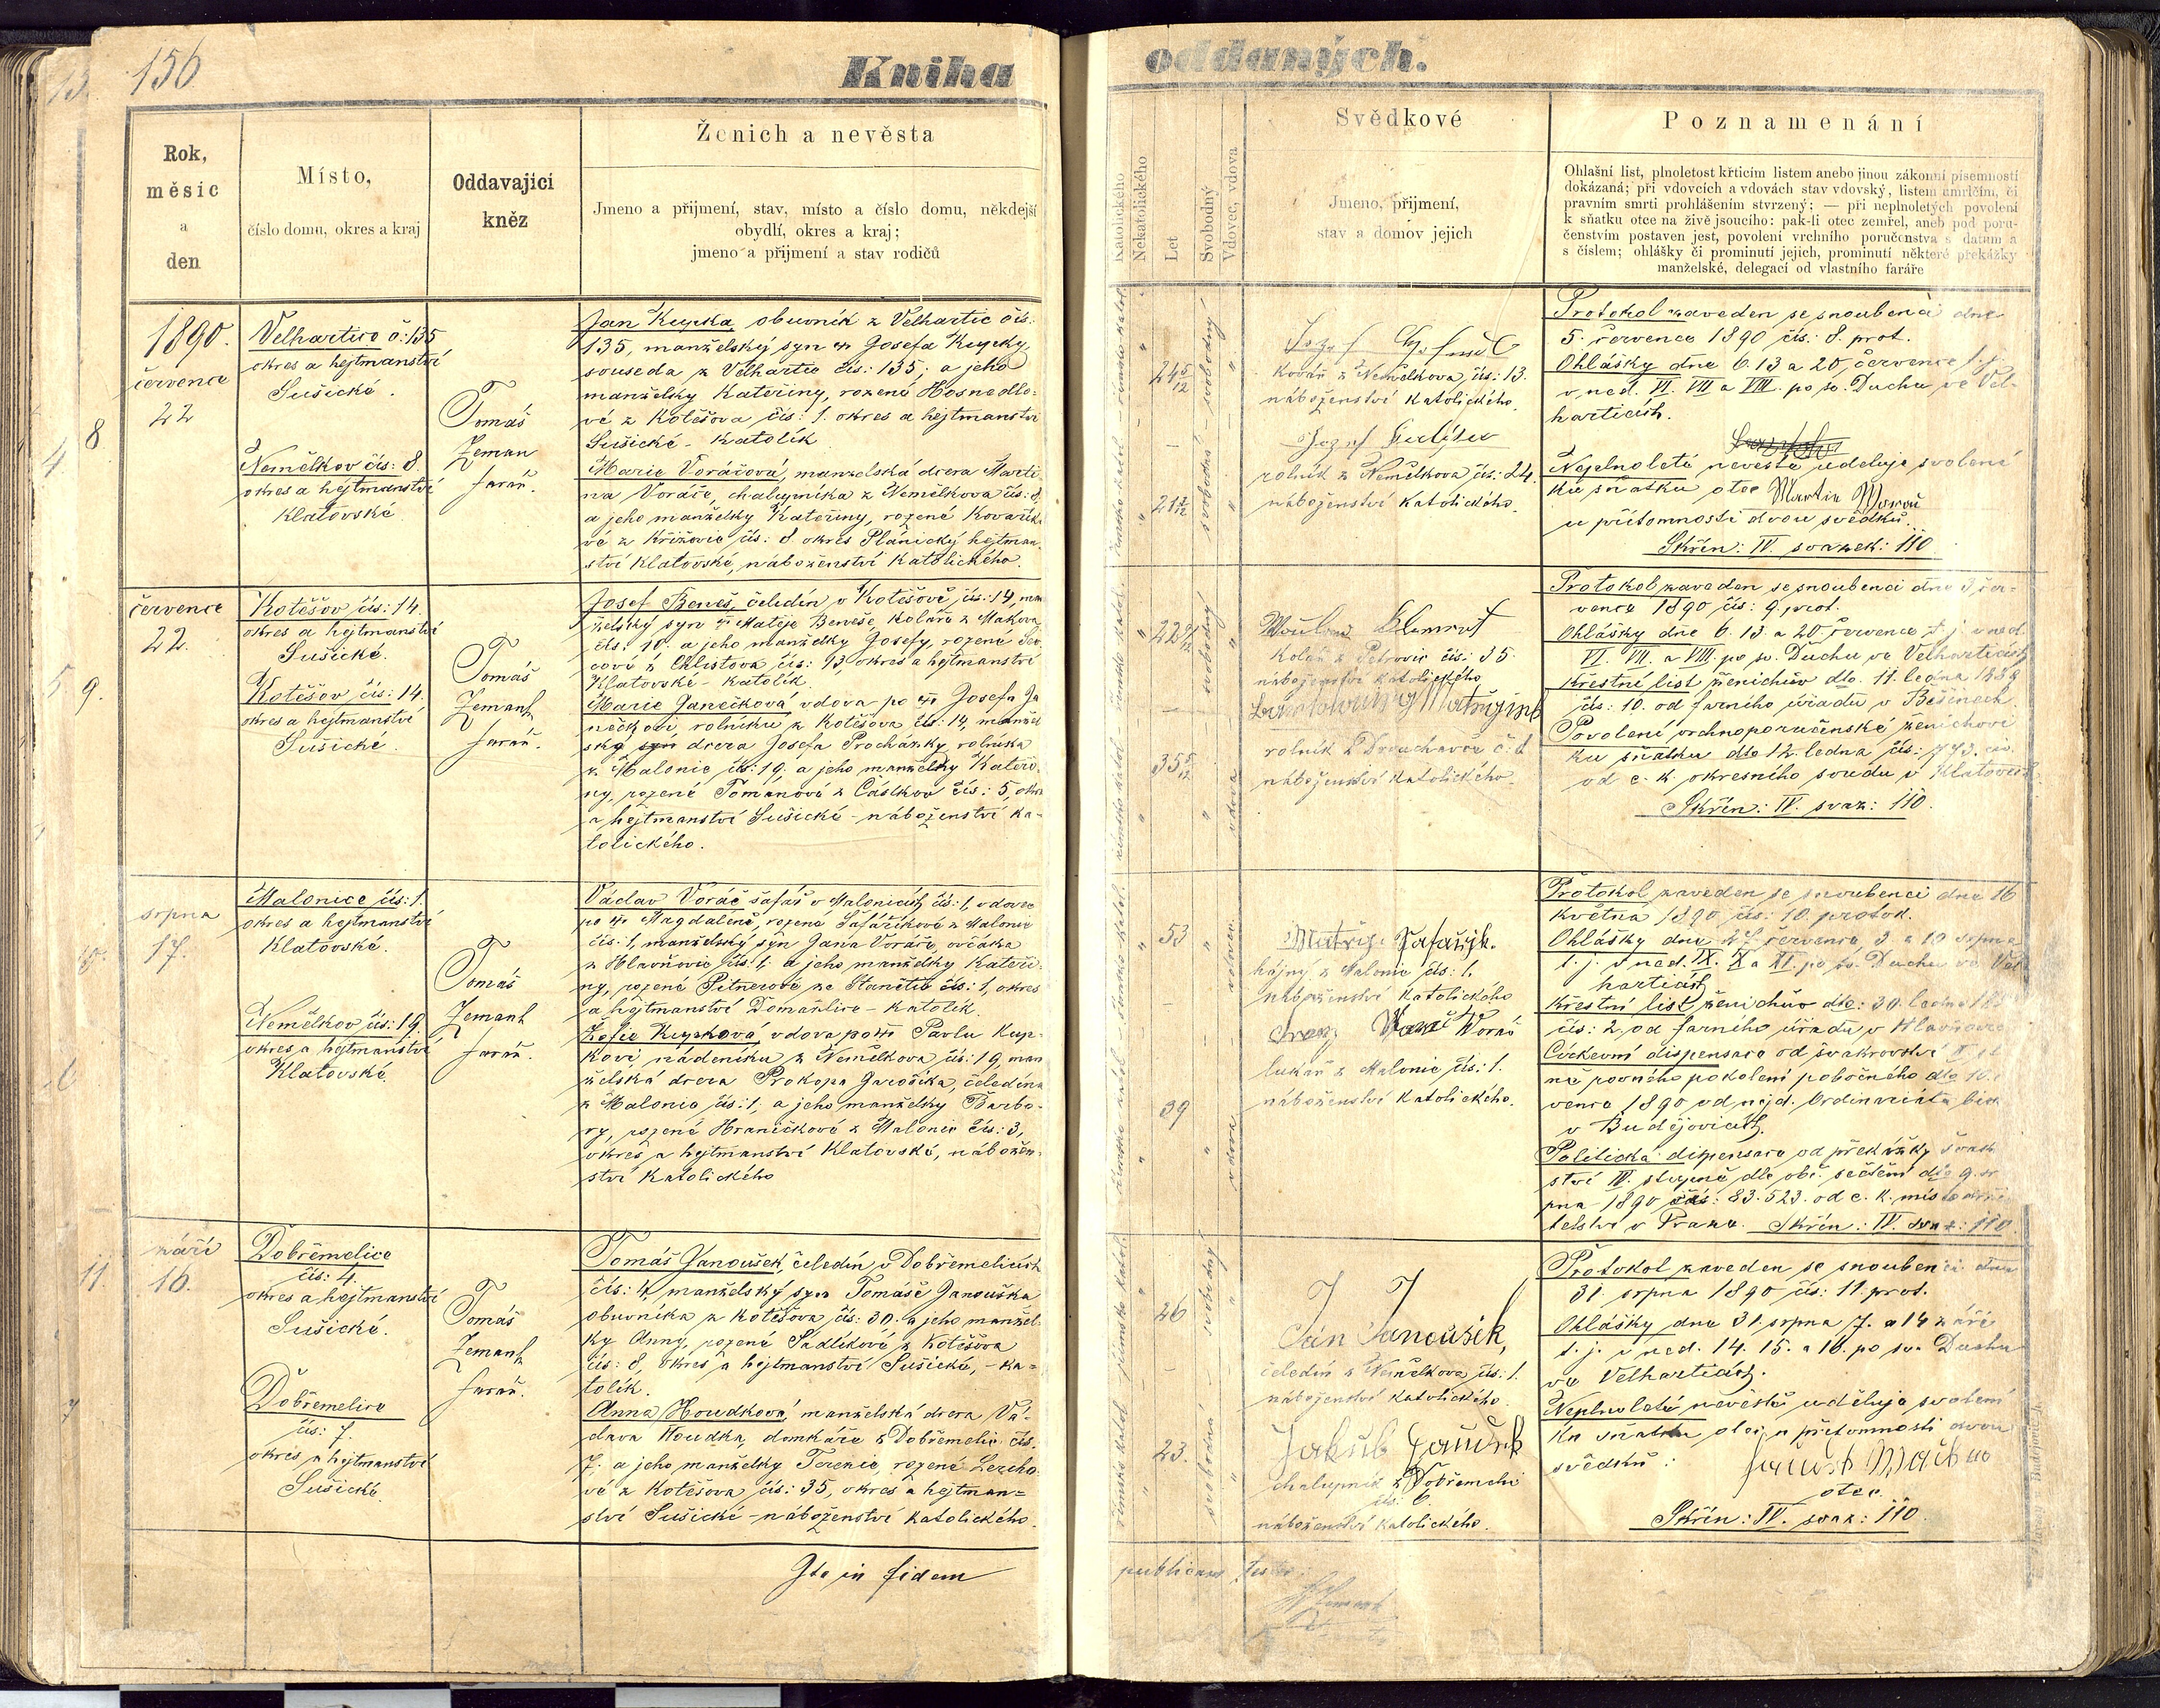 156
Kniha oddaných.
Rok, měsíc a den
Místo,
číslo domu, okres a kraj
Oddavající kněz
Ženich a nevěsta
Jmeno a přijmení, stav, místo a číslo domu, někdejší
obydlí, okres a kraj;
jmeno a přijmení a stav rodičů
Katolického
Nekatolického
Let
Svobodný
Vdovec, vdova
Svědkové
Jmeno, přijmení,
stav a domov jejich
Poznamenání
Ohlašní list, plnoletost křticím listem anebo jinou zákonní písemností
dokázaná; při vdovcích a vdovách stav vdovský, listem úmrlčím, či
pravním smrti prohlášením stvrzený; — při neplnoletých povolení
k sňatku otce na živě jsoucího: pak-li otec zemřel, aneb pod poru-
čenstvím postaven jest, povolení vrchního poručenstva s datum a
s číslem; ohlášky či prominutí jejich, prominutí některé překážky
manželské, delegací od vlastního faráře
8
1890.
července
22
Velhartice č: 135
okres a hejtmanství
Sušické.
Němělkov čís: 8.
okres a hejtmanství
Klatovské
Tomáš
Zeman
farář.
Jan Kupka, obuvník z Velhartic čís:
135, manželský syn Josefa Kupky,
souseda z Velhartic čís: 135; a jeho
manželky Kateřiny, rozené Hosnedlo-
vé z Kotěšova čís: 1. okres a hejtmanství
Sušické - katolík
Marie Voráčová, manželská dcera Marti-
na Voráče, chalupníka z Němělkova čís: 8,
a jeho manželky Kateřiny, rozené Kovaříko-
vé z Křížovic čís: 8 okres Plánický hejtman-
ství Klatovské, náboženství katolického.
24 5/12
svobodný
svobodná
kovář z Němělkova, čís: 13.
náboženství katolického.
Jozef
rolník z Němělkova čís: 24.
náboženství katolického.
Protokol zaveden se snoubenci dne
5. července 1890 čís: 8. prot.
Ohlášky dne 6. 13 a 20. července t. j.
v ned. VI. VII a VIII. po sv. Duchu, ve Vel-
harticích.
Neplnoleté nevěstě uděluje svolení
ku sňatku otec Martin Woráč
u přítomnosti dvou svědků.
Skříň: IV. svazek: 110
9.
července
22.
Kotěšov čís: 14.
okres a hejtmanství
Sušické.
Kotěšov čís: 14.
okres a hejtmanství
Sušické.
Tomáš
Zemanh
farář.
Josef Beneš, čeledín v Kotěšově čís: 14, man-
želský syn Matěje Beneše, koláře z Makova
čís: 10. a jeho manželky Josefy, rozené
cové z Chlistova čís: 13, okres a hejtmanství
Klatovské - katolík.
Marie Janečková, vdova po Josefu Ja-
nečkovi rolníku z Kotěšova čís: 14, manžel-
ská dcera Josefa Procházky, rolníka
z Malonic čís: 19. a jeho manželky Kateři-
ny, rozené Tomanové z Částkov čís: 5, okres
a hejtmanství Sušické - náboženství ka-
tolického.
svobodný
vdova
Kolář z Petrovic čís: 35.
náboženství katolického
rolník z Drouhavče č: 1
náboženství katolického
Protokol zaveden se snoubenci dne čer-
vence 1890 čís: 9. prot.
Ohlášky dne 6. 13. a 20. července t. j. v ned.
VI. VII. a VIII. po sv. Duchu ve Velharticích
Křestní list ženichův dto. 11. ledna 1889
čís: 10. od farního úřadu v Běšinech
Povolení vrchnoporučenské ženichovi
ku sňatku dto 12. ledna čís: 793. civ.
od c. k. okresního soudu v Klatovech
Skříň: IV. svaz: 110.
10.
srpna
17.
Malonice čís: 1.
okres a hejtmanství
Klatovské.
Němělkov, čís: 19.
okres a hejtmanství
Klatovské.
Tomáš
Zemanh
farář.
Václav Voráč šafář v Malonicích čís: 1, vdovec
po Magdaléně, rozené Šafaříkové z Malonic
čís: 1, manželský syn Jana Voráče, ovčáka
z Hlavňovic čís: 1; a jeho manželky Kateři-
ny, rozené Pitnerové ze Stanětic čís: 1, okres
a hejtmanství Domažlice - katolík.
Žofie Kupková vdova po Pavlu Kup-
kovi, nádeníku z Němělkova čís: 19, man-
želská dcera Prokopa Jarošíka, čeledína
z Malonic čís: 1; a jeho manželky Barbo-
ry, rozené Hraničkové z Malonic čís: 3,
okres a hejtmanství Klatovské, nábožen-
ství katolického
53
39
vdovec
vdova
Matěj Šafařjk.
hajný z Malonic čís: 1.
náboženství katolického
Woráč
lukař z Malonic čís: 1.
náboženství katolického.
Protokol zaveden se snoubenci dne 16
května 1890 čís: 10. protok.
Ohlášky dne 27 července, 3. a 10 srpna
t. j. v ned. IX. X a XI. po sv. Duchu ve Vel-
harticích
Křestní list ženichův dto: 30. ledna
čís: 2. od farního úřadu v Hlavňovic
Církevní dispensace od švakrovství
ně rovného pokolení pobočného dto 10.
vence 1890 od nejd. Ordinariátu bisk.
v Budějovicích.
Politická dispensace od překážky švakr
ství IV. stupně dle obč. sečtění dto 9. sr
pna 1890 čís: 83.523. od c. k. místodrži
telství v Praze. Skříň: IV. svaz: 110
11.
září
16.
Dobřemelice
čís: 4.
okres a hejtmanství
Sušické.
Dobřemelice
čís: 7.
okres a hejtmanství
Sušické
Tomáš
Zemanh
farář.
Tomáš Janoušek, čeledín v Dobřemelicích
čís: 4, manželský syn Tomáše Janouška
obuvníka z Kotěšova čís: 30. a jeho manžel-
ky Anny, rozené Sádlíkové z Kotěšova
čís: 8, okres a hejtmanství Sušické, - ka-
tolík.
Anna Houdková, manželská dcera Vá-
clava Houdka, domkáře z Dobřemelic čís.
7. a jeho manželky Terezie, rozené
vé z Kotěšova, čís: 35, okres a hejtman-
ství Sušické - náboženství katolického.
26
23.
svobodný
svobodná
Ján Janoušek,
čeledín z Němělkova, čís: 1.
náboženství katolického
Jakub
chalupník z Dobřemelic
čís: 6.
náboženství katolického.
Protokol zaveden se snoubenci dne
31. srpna 1890 čís: 11. prot.
Ohlášky dne 31. srpna 7. a 14 září
t. j. v ned. 14. 15. a 16. po sv. Duchu
ve Velharticích.
Neplnoleté nevěstě uděluje svolení
ku sňatku otec, u přítomnosti dvou
svědků:
otec.
Skříň: IV. svaz: 110.
Ita in fidem